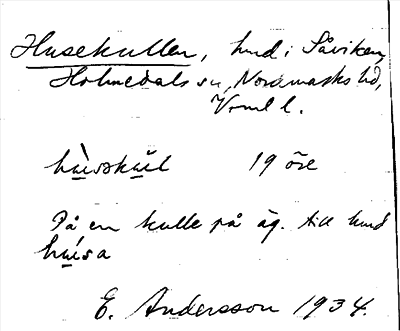 Husekullen, hmd i Såviken,
Holmedals sn, Nordmarks hd,
Vrml l.
hùsskul 19 öre
På en kulle på äg. till hmd
húsa
E. Andersson 1934.